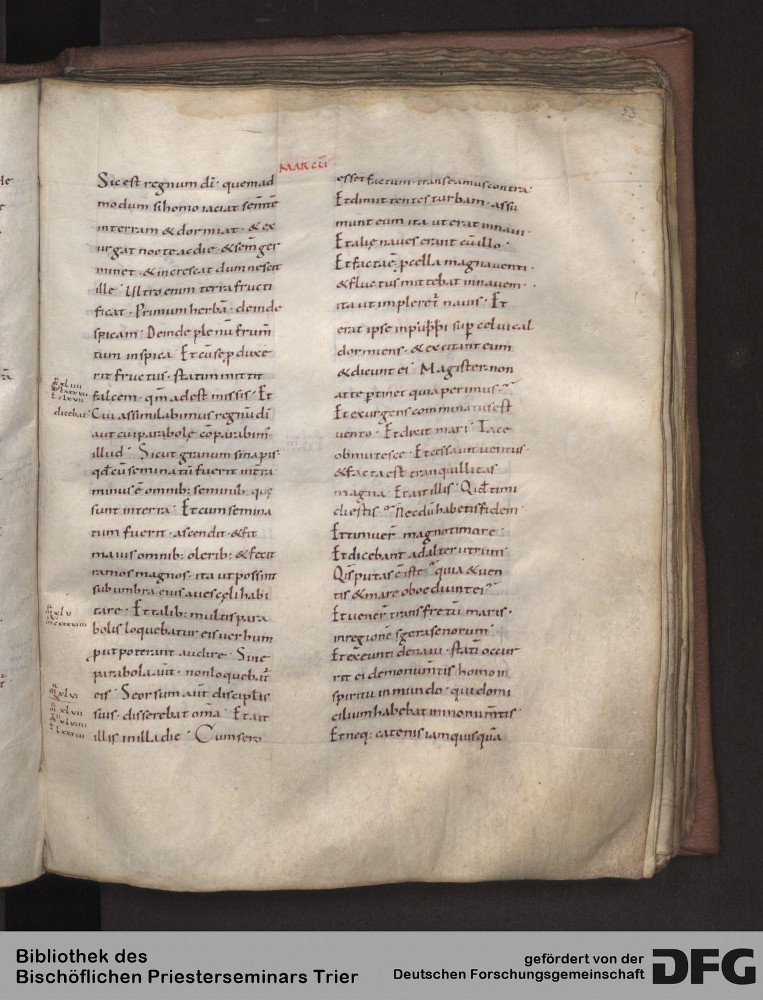 53
MARCŪ
Sic est regnum dī · quemad
modum si homo iaciat semte
interram & dormiat · & ex
urgat nocte ac die · & semger
minet · & increscat dum nescit
ille · Ultro enim terra fructi
ficat · Primum herbā · deinde
spicam · Deinde plenū frum̄
tum in spica · Et cū se p̄duxe
rit fructus · statim mittit
falcem · qm̄ adest missis · Et
dicebat · Cui assimilabimus regnū dī
aut cui parabole cōparabim̄
illud · Sicut granum sinapis ·
qd̄ cū seminatū fuerit interra
minus ē omnib: seminib · que
sunt interra · Et cum semina
tum fuerit · ascendit · & fit
maius omnib: olerib: & fecit
ramos magnos · ita ut possint
sub umbra eius aues cęli habi
tare · Et talib: multis para
bolis loquebatur eis uerbum
put poterant audire · Sine
parabola aūt · non loquebat̄
eis · Seorsum aūt discipl̄is
suis · disserebat om̄a · Et ait
illis in illa die · Cum sero
esset factum · transeamus contra ·
Et dimittentes turbam · assu
munt eum ita ut erat innaui ·
Et alię naues erant cū illo ·
Et facta ē pcella magna uenti ·
& fluctus mittebat innauem ·
ita ut impleret̄ nauis · Et
erat ipse inpuppi sup ceruical
dormiens · & excitant eum
& dicunt ei · Magister non
ad te ptinet quia perimus ·
Et exurgens comminatus est
uento · Et dixit mari · Tace
obmutesce · Et cessauit uentus ·
& facta est tranquillitas
magna · Et ait illis · Qid timi
di estis · Necdū habetis fidem ·
Et timuer̄ magno timore ·
Et dicebant ad alterutrum ·
Qis putas ē iste · quia & uen
tis & mare oboediunt ei
Et uener̄ trans fretū maris ·
in regionē gerasenorum ·
Et exeunti de naui · statī occur
rit ei demonum̄tis homo in
spiritu inmundo · qui domi
cilium habebat inmonum̄tis ·
Et neq: catenis iam quisquā
Bibliothek des
Bischöflichen Priesterseminars Trier
gefördert von der
Deutschen Forschungsgemeinschaft
DFG